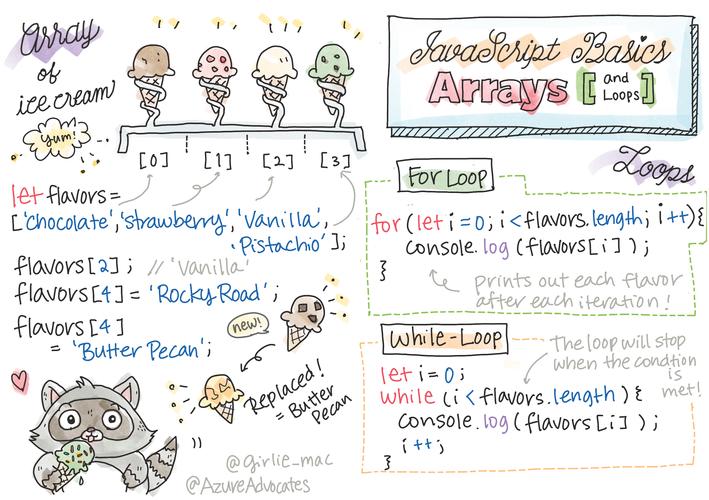 Array
of
ice cream
Yum!
[0] [1] [2] [3]
let flavors =
['chocolate', 'strawberry', 'Vanilla',
'Pistachio'];
flavors[2]; // 'Vanilla'
flavors[4] = 'Rocky Road';
flavors[4]
= 'Butter Pecan';
new!
Replaced!
= Butter
Pecan
@girlie_mac
@AzureAdvocates
JavaScript Basics
Arrays [and
Loops]
Loops
For Loop
for (let i=0; i<flavors.length; i++){
console.log(flavors[i]);
}
prints out each flavor
after each iteration!
While-Loop
The loop will stop
when the condition
is
met!
let i=0;
while (i<flavors.length){
console.log(flavors[i]);
i++;
}